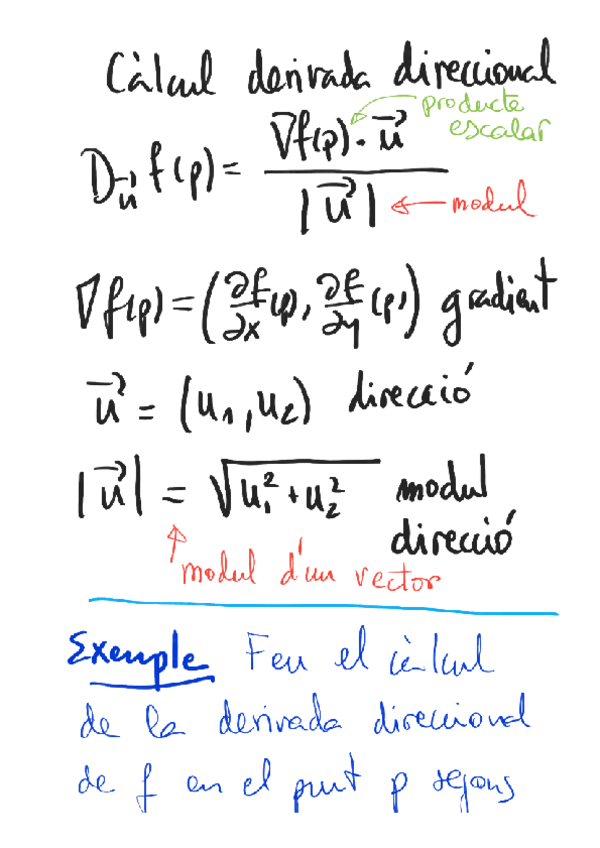 Càlcul derivada direccional
producte
escalar
D_{\vec{u}} f(p) = \frac{∇f(p) · \vec{u}}{|\vec{u}|}
modul
∇f(p) = (\frac{∂f}{∂x}(p), \frac{∂f}{∂y}(p)) gradient
\vec{u} = (u_1, u_2) direcció
|\vec{u}| = \sqrt{u_1^2 + u_2^2} modul
direcció
modul d'un vector
Exemple Feu el càlcul
de la derivada direccional
de f en el punt p segons